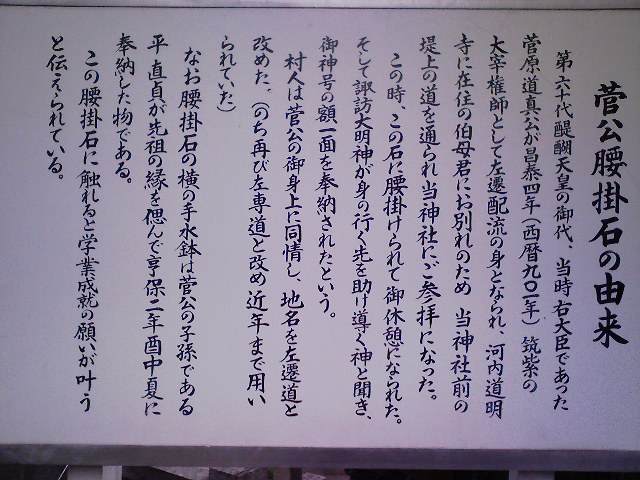 菅公腰掛石の由来
第六十代醍醐天皇の御代、当時右大臣であった
菅原道真公が昌泰四年(西暦九〇一年)筑紫の
大宰権師として左遷配流の身となられ、河内道明
寺に在住の伯母君にお別れのため 当神社前の
堤上の道を通られ当神社にご参拝になった。
この時、この石に腰掛けられて御休憩になられた。
そして諏訪大明神が身の行く先を助け導く神と聞き、
御神号の額一面を奉納されたという。
村人は菅公の御身上に同情し、地名を左遷道と
改めた。(のち再び左専道と改め近年まで用い
られていた)
なお腰掛石の横の手水鉢は菅公の子孫である
平 直貞が先祖の縁を偲んで享保二年酉中夏に
奉納した物である。
この腰掛石に触れると学業成就の願いが叶う
と伝えられている。